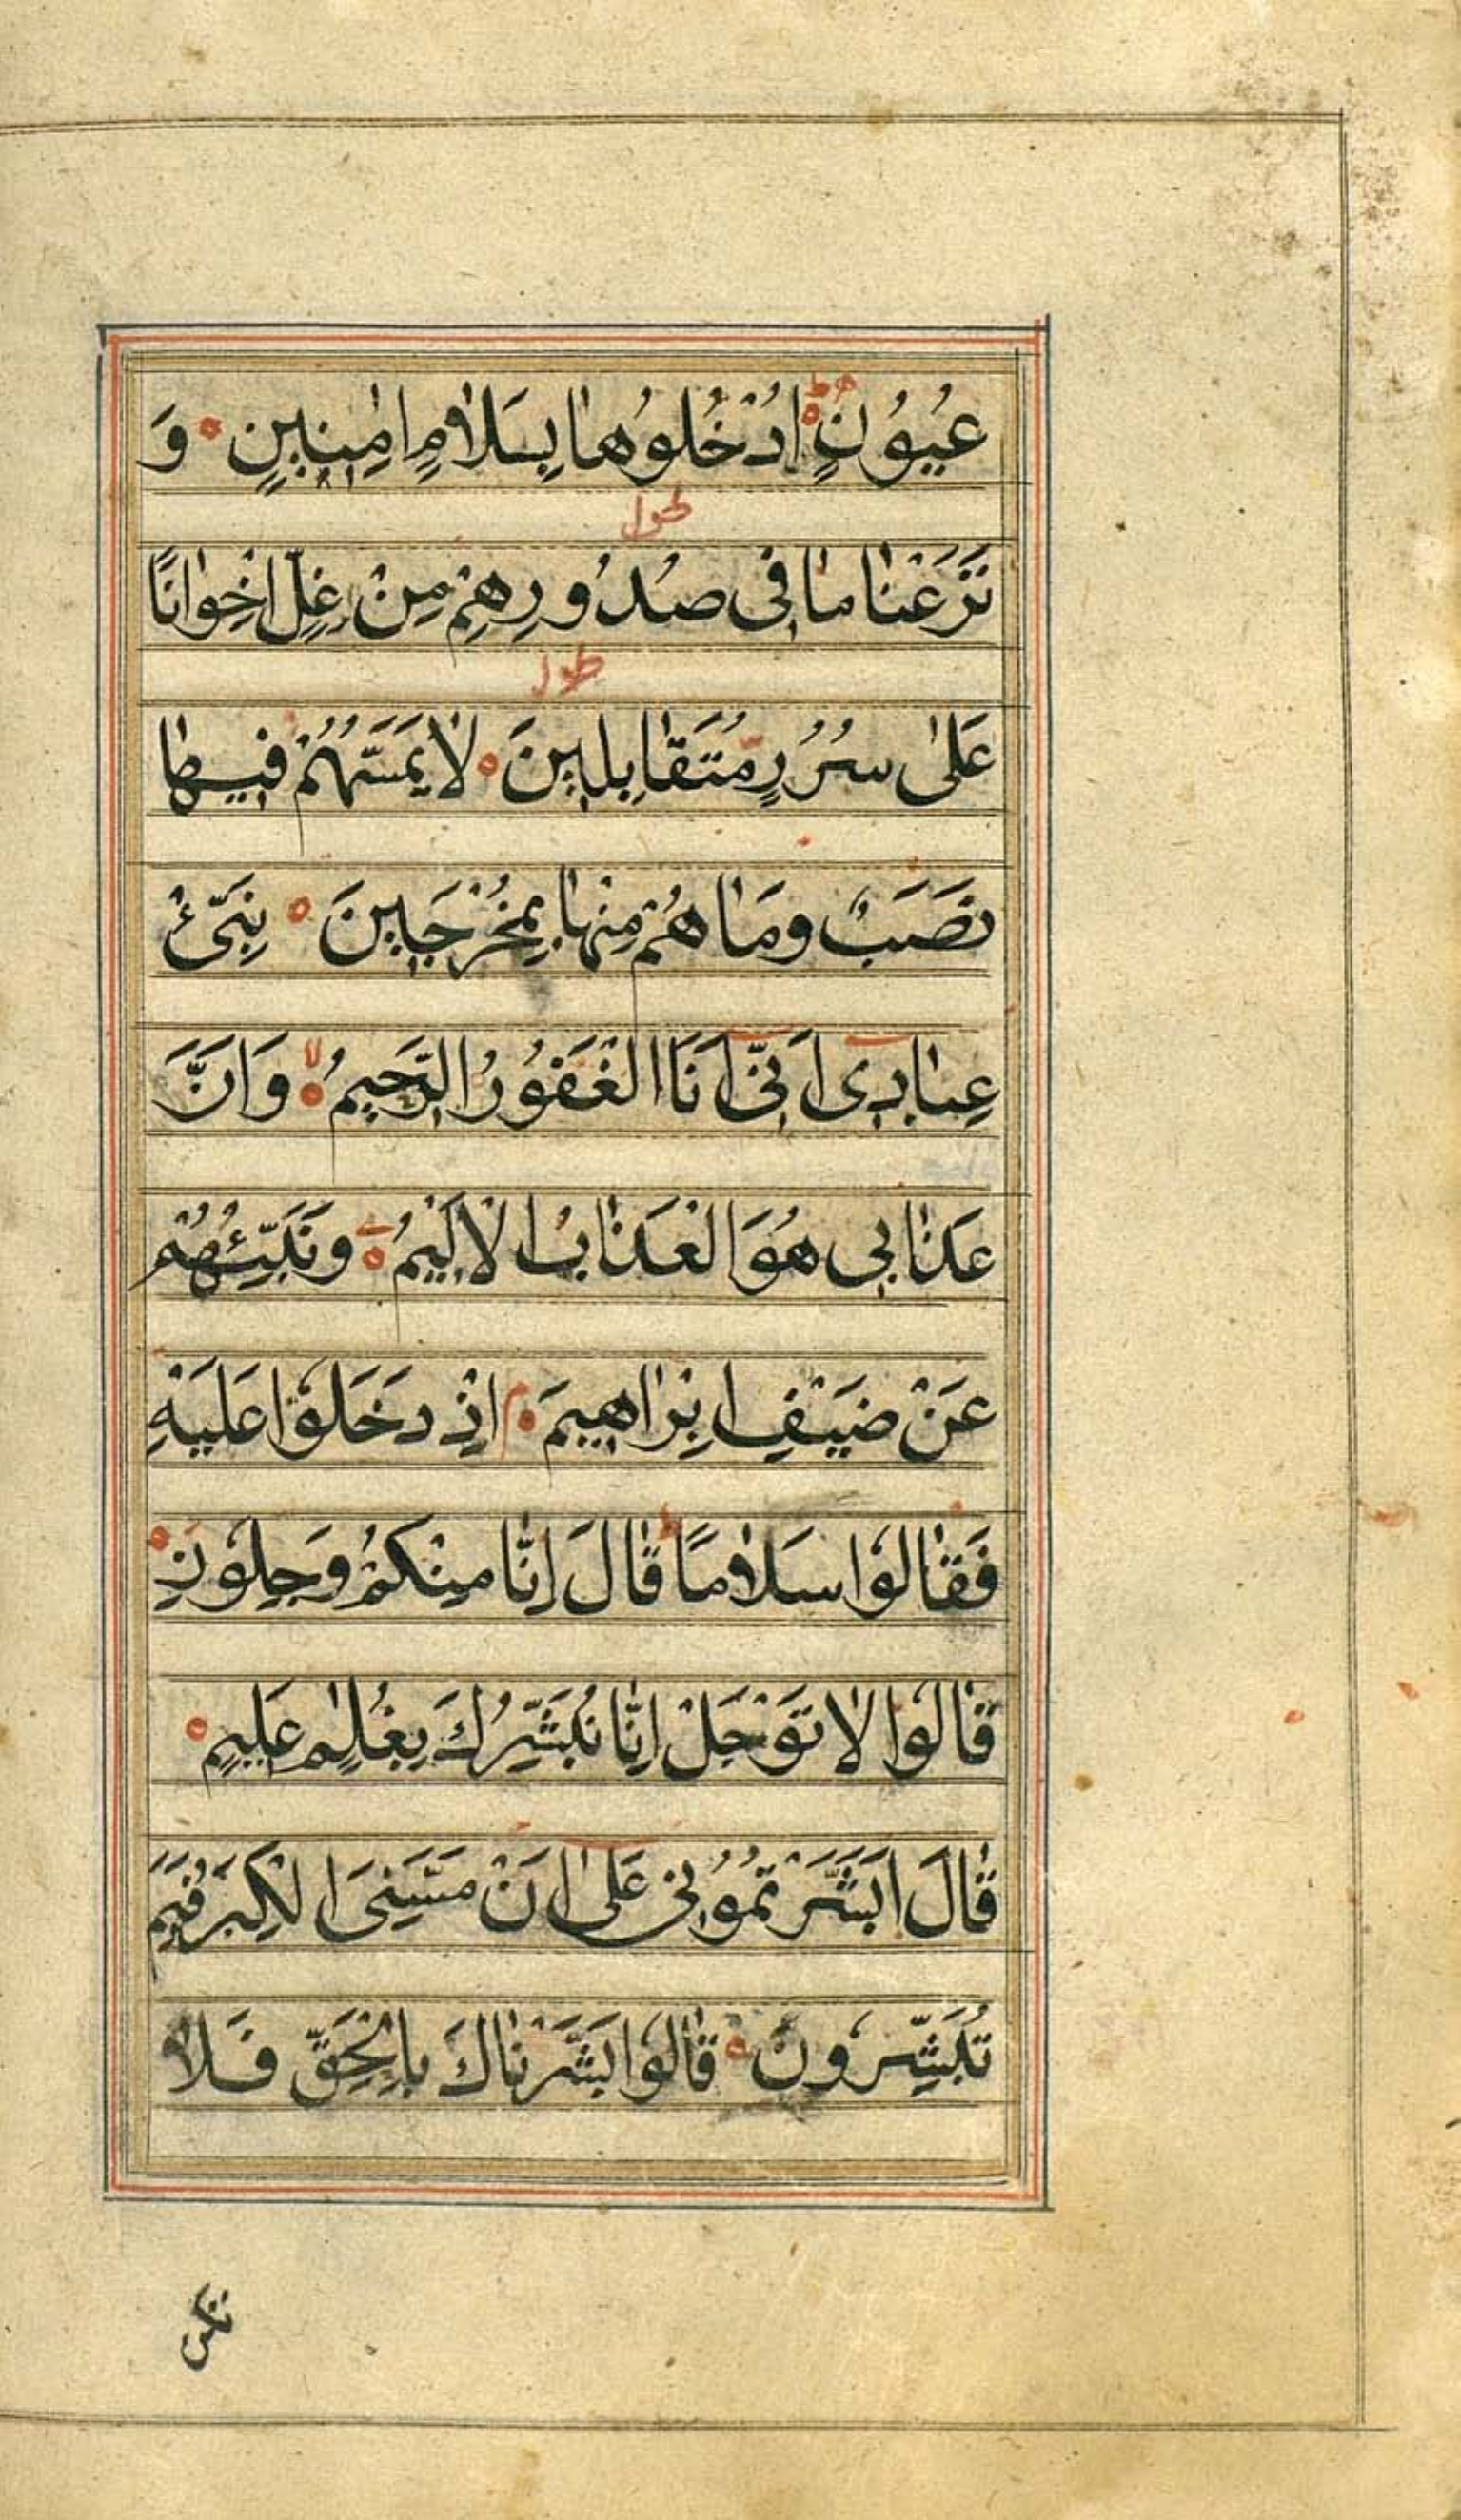 عُيُوُنٍ اُدْخُلُوُهاٰ بِسَلاٰمٍ اٰمِنِينٖ وَ
طول
نَزَعْناٰ ماٰ فٖى صُدُورِهِمْ مِنْ غِلٍّ اِخْواٰنًا
طول
عَلىٰ سُرُرٍ مُتَقاٰبِلٖينَ لاٰ يَمَسُّهُمْ فٖيهاٰ
نَصَبٌ وَمَاٰ هُمْ مِنْهاٰ بِمُخْرَجٖينَ نَبِّئْ
عِباٰدٖى اَنّٖى اَنَا الْغَفُوُرُ الرَّحٖيمُ لا وَاَنَّ
عَذاٰبٖى هُوَ الْعَذاٰبُ الْاَلٖيمُ وَنَبِّئْهُمْ
عَنْ ضَيْفِ اِبْراٰهٖيمَ م اِذْ دَخَلُوا عَلَيْهِ
فَقاٰلُوا سَلاٰمًا ط قاٰلَ اِنّاٰ مِنْكُمْ وَجِلُونَ
قاٰلُوا لاٰ تَوْجَلْ اِنّاٰ نُبَشِّرُكَ بِغُلٰمٍ عَلٖيمٍ
قاٰلَ اَبَشَّرْتُمُوُنٖى عَلىٰ اَنْ مَسَّنِىَ الْكِبَرُ فَبِمَ
تُبَشِّرُونَ قاٰلُوا بَشَّرْناٰكَ بِالْحَقِّ فَلاٰ
تكن